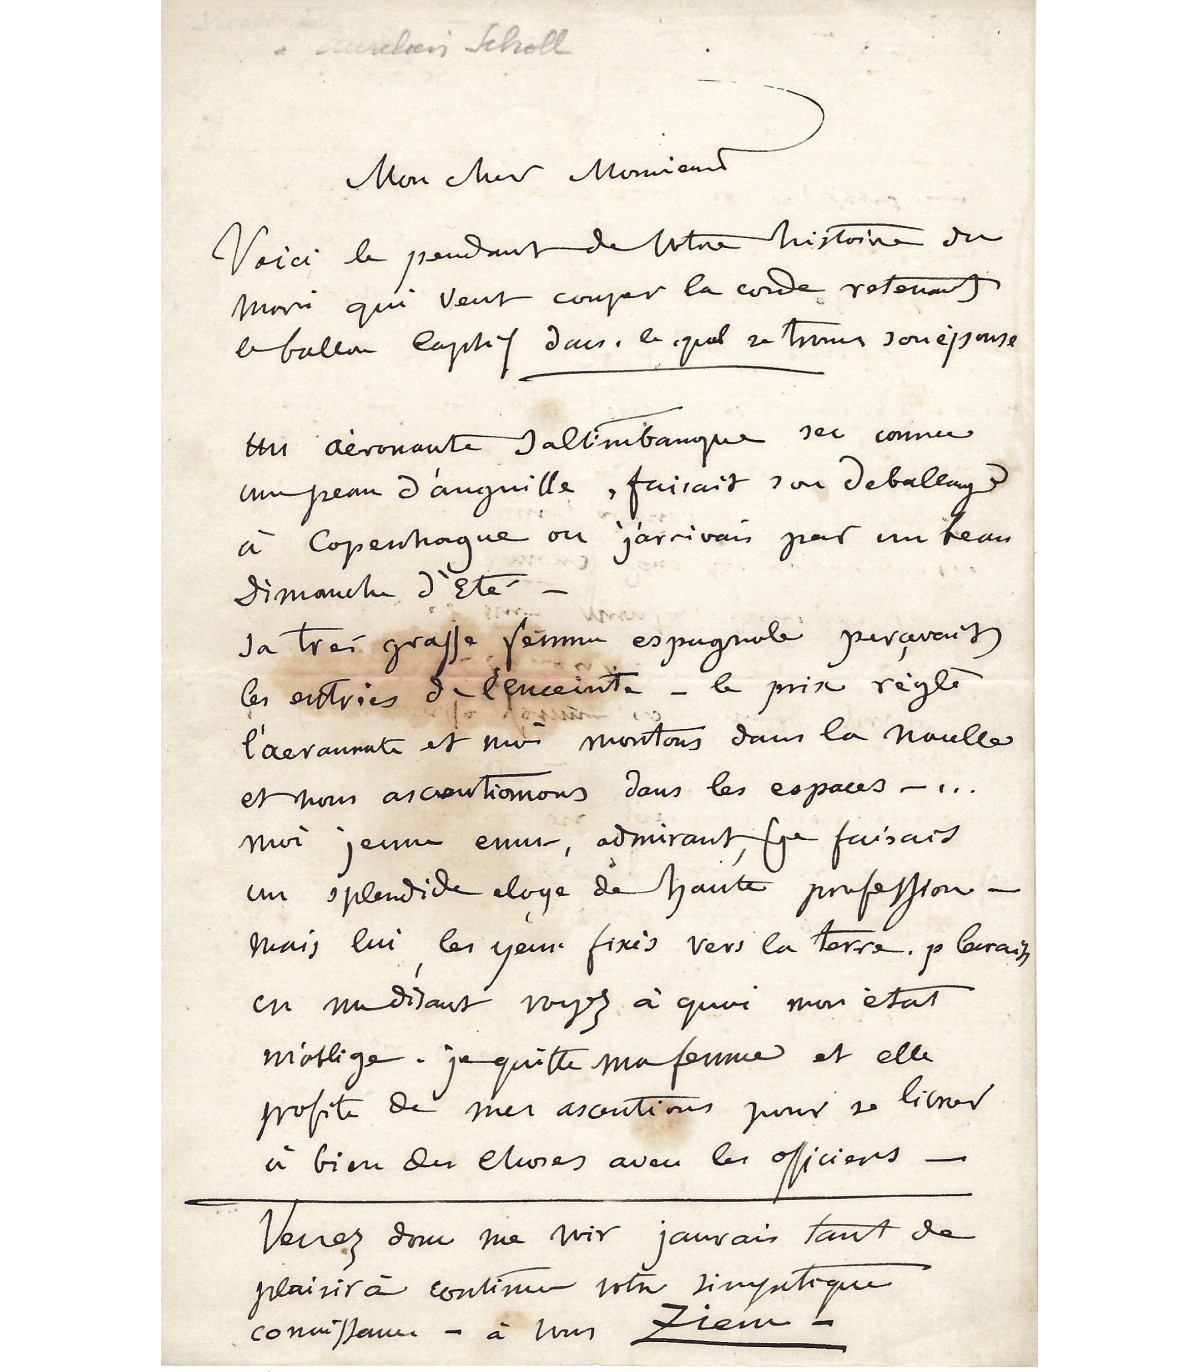 Aurelien Scholl
Mon cher Monsieur
Voici le pendant de votre histoire du
mari qui veut couper la corde retenant
le ballon captif dans le quel se trouve son épouse
un aéronaute saltimbanque sec comme
une peau d'anguille, faisait son deballage
à Copenhague ou j'arrivais par un beau
Dimanche d'Eté —
sa trés grasse femme espagnole perçevait
les entrées de l'Enceinte — le prix réglé
l'aeronaute et moi montons dans la naçelle
et nous ascentionnons dans les espaces — ...
moi jeune emu, admirant, je faisais
un splendide eloge de haute profession —
mais lui, les yeux fixés vers la terre. pleurait
en me disant voyez à quoi mon état
m'oblige. je quitte ma femme et elle
profite de mes ascentions pour se livrer
à bien des choses avec les officiers —
Venez donc me voir jaurais tant de
plaisir à continuer votre
connaissance — à vous Ziem —